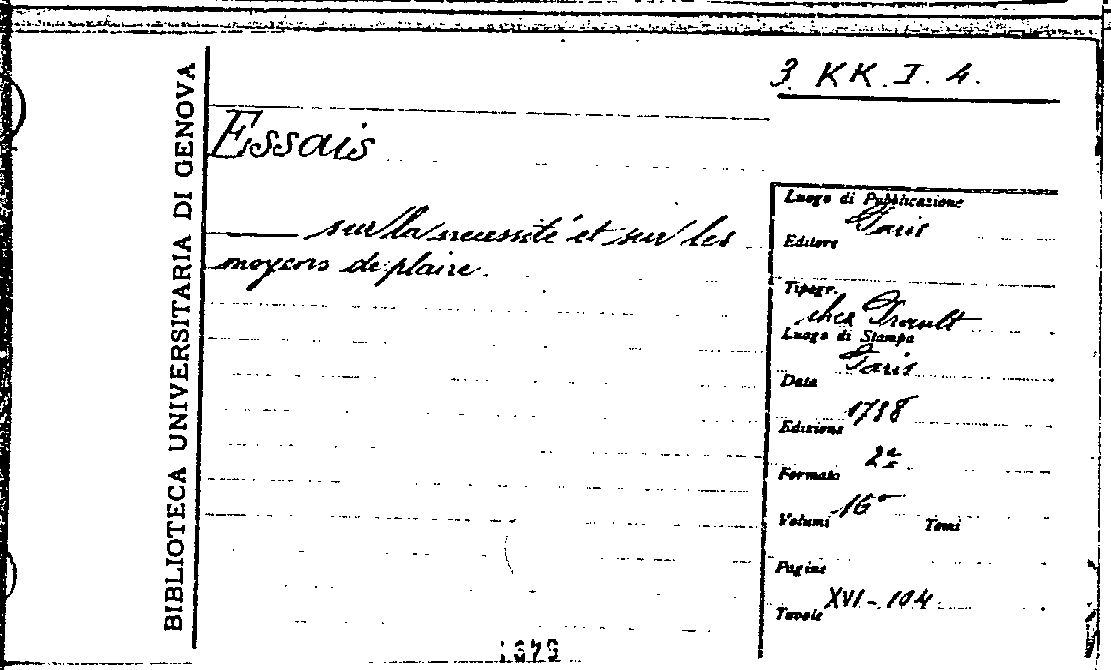 BIBLIOTECA UNIVERSITARIA DI GENOVA
3. KK. I. 4.
Essais
—— sur la necessité et sur les
moyens de plaire.
Luogo di Pubblicazione
Paris
Editore
Tipogr.
chez Prault
Luogo di Stampa
Paris
Data
1738
Edizione
2ª
Formato
16°
Volumi Tomi
Pagine
XVI-104
Tavole